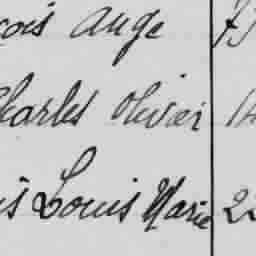 çois Ange 73
Charles Olivier 14
is Louis Marie 22